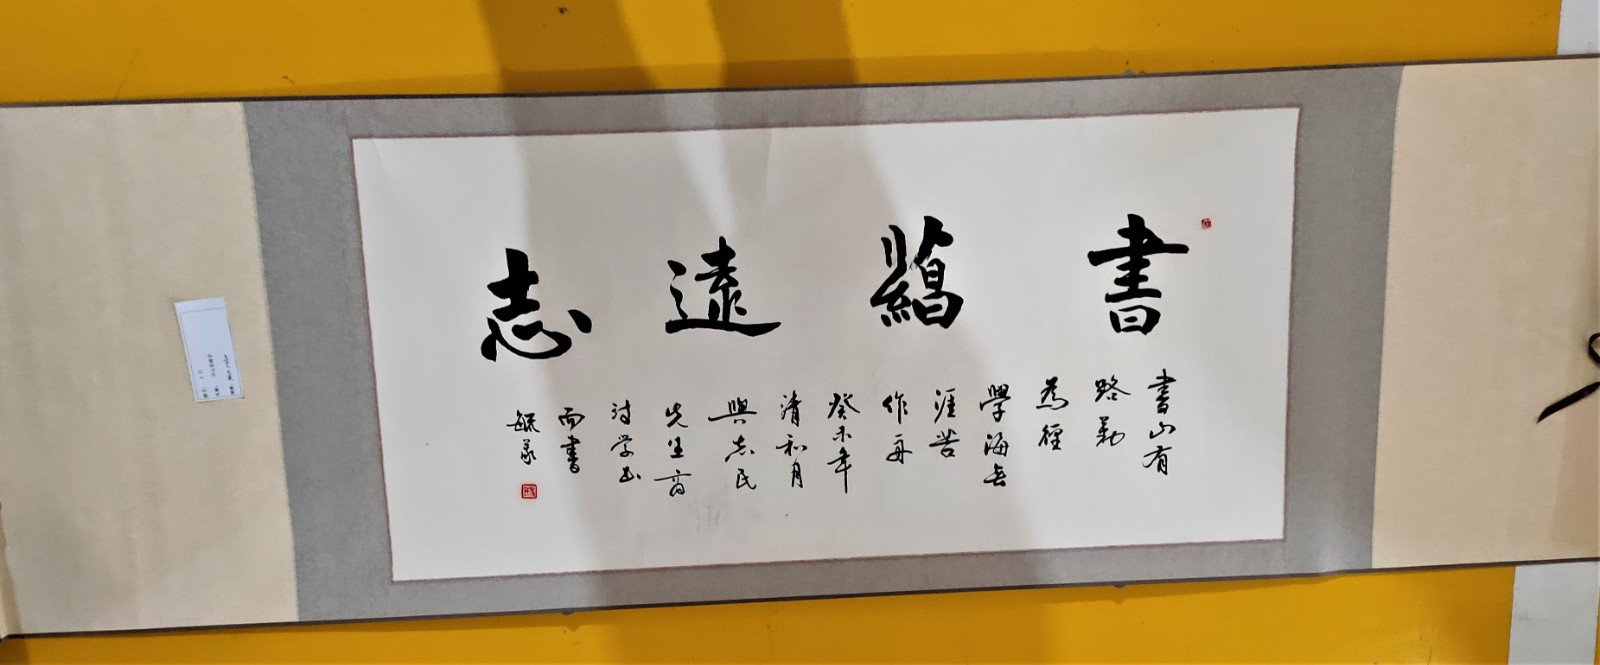 書藴遠志
書山有
路勤
為徑
學海無
涯苦
作舟
癸未年
清和月
與志民
先生商
討学书
而書
毓